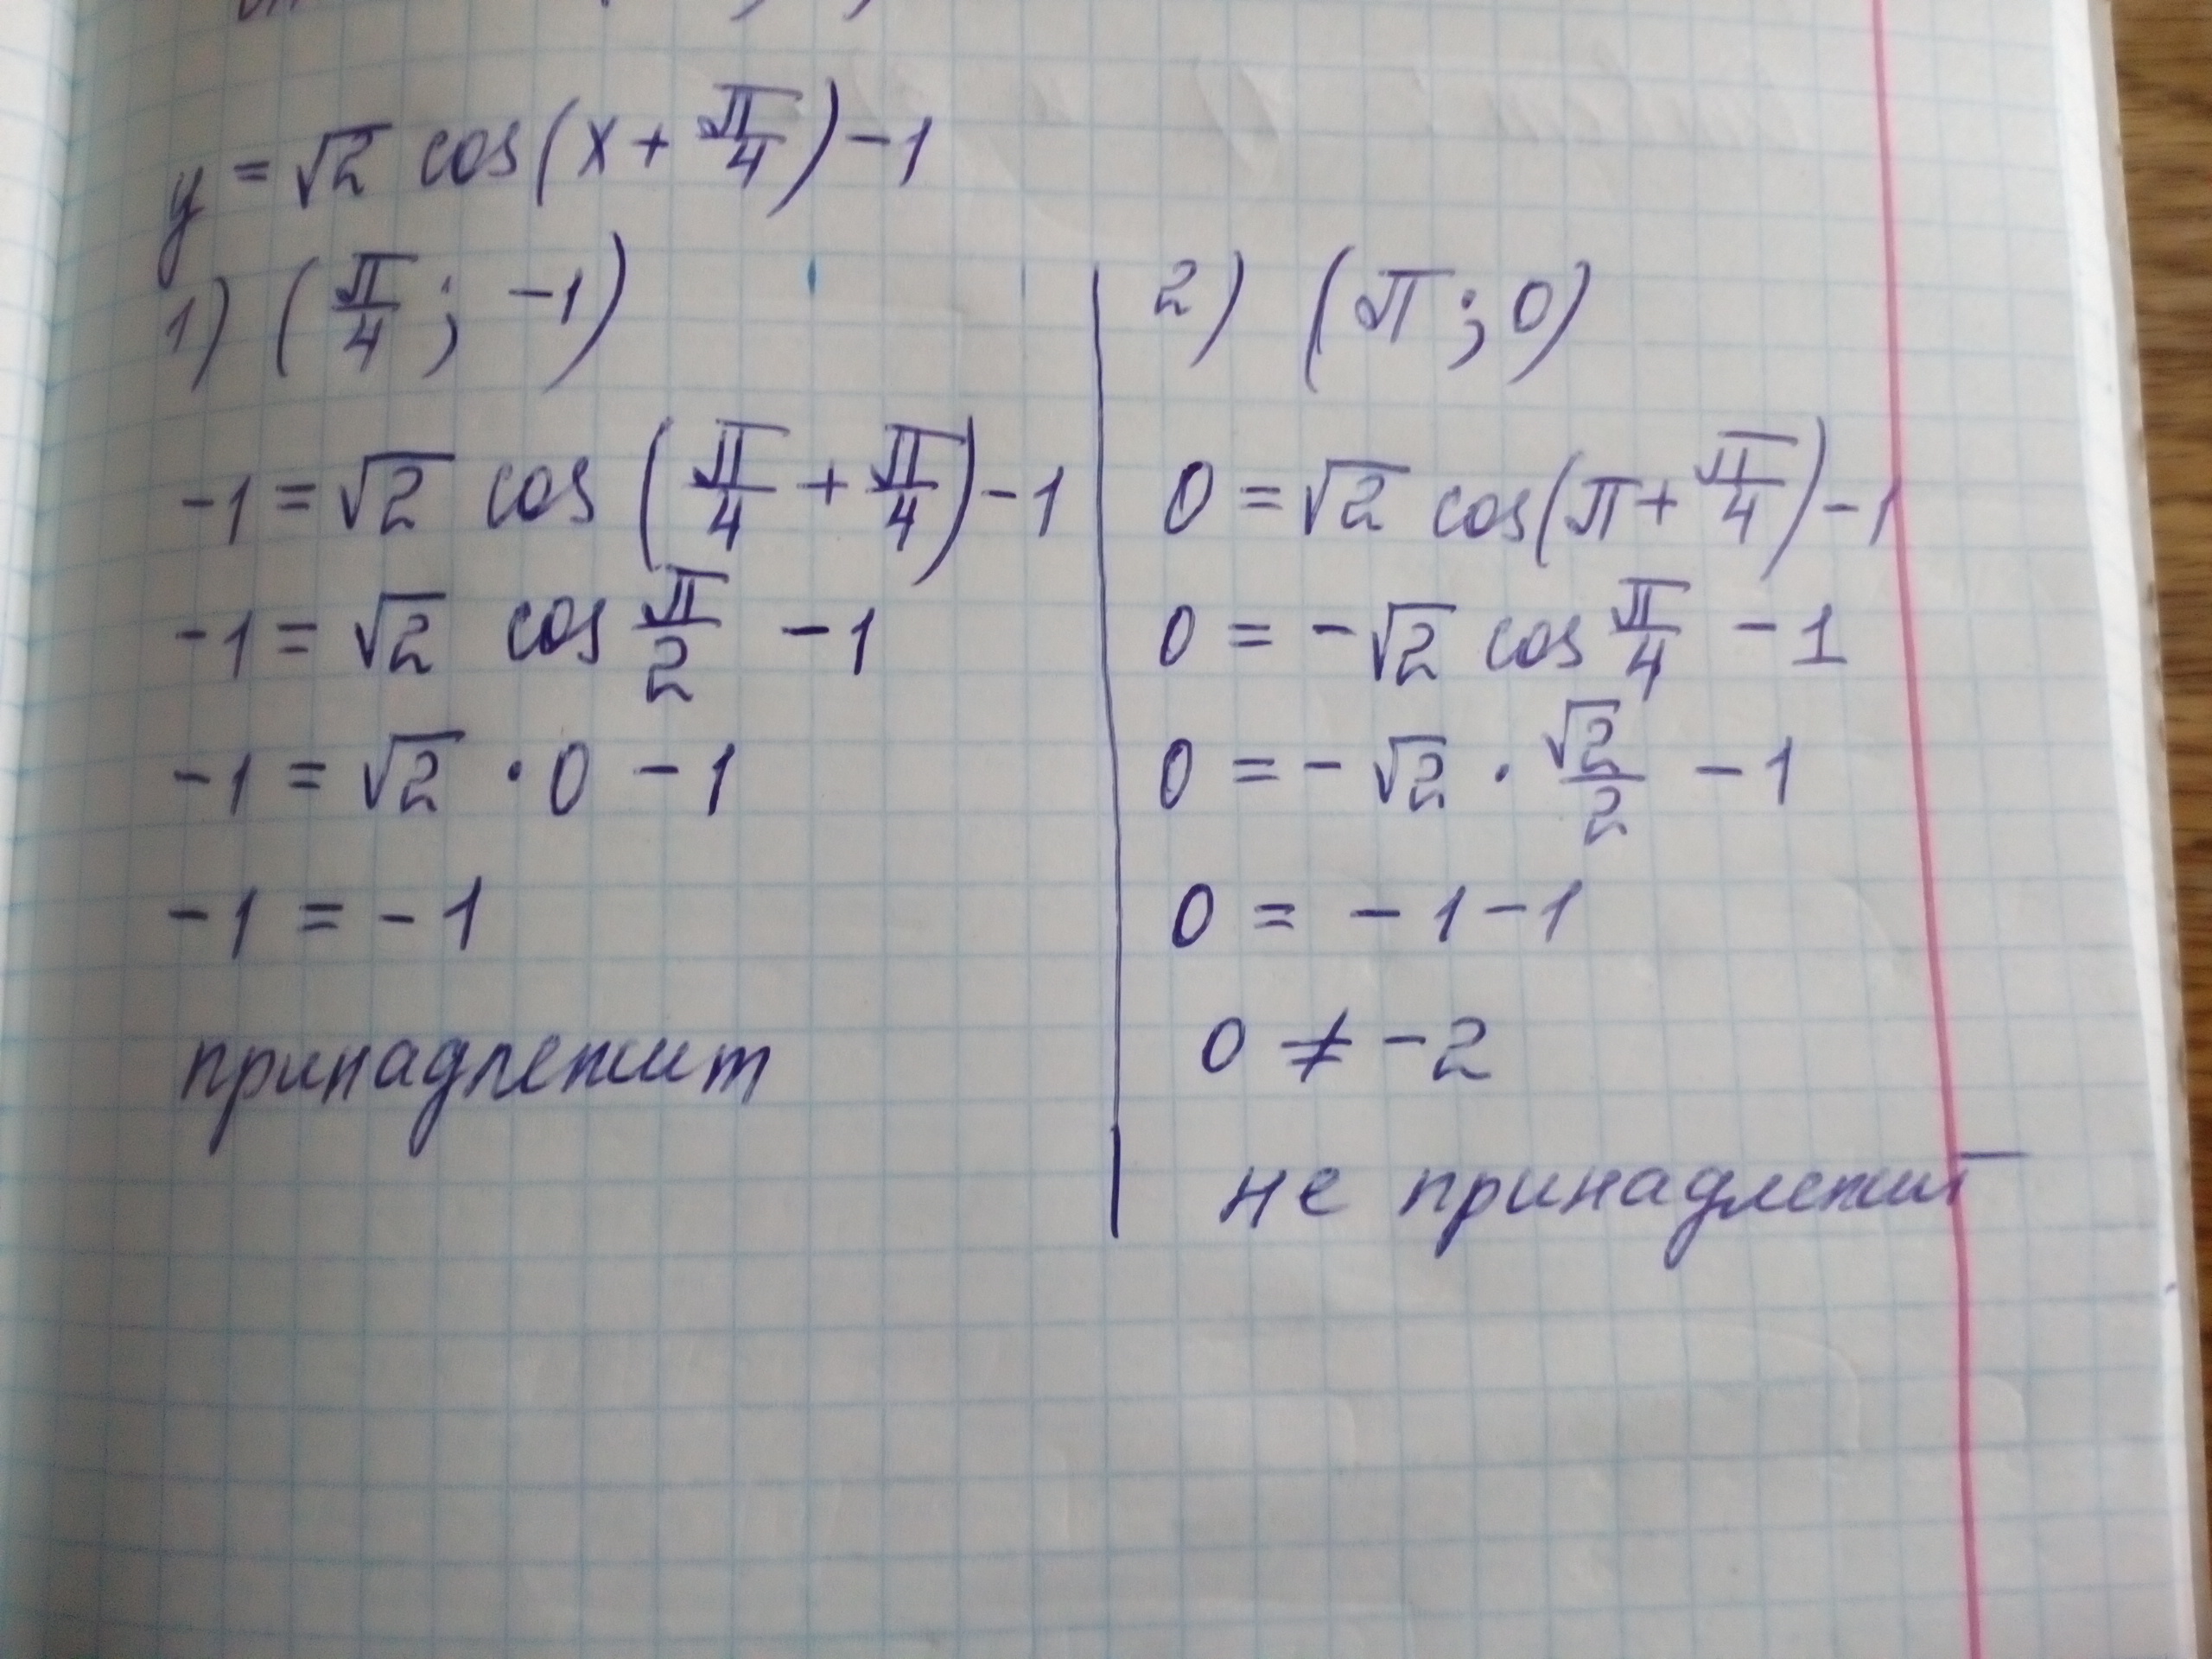 y = √2 cos(x + π/4) - 1
1) (π/4; -1)
-1 = √2 cos (π/4 + π/4) - 1
-1 = √2 cos π/2 - 1
-1 = √2 · 0 - 1
-1 = -1
принадлежит
2) (π; 0)
0 = √2 cos(π + π/4) - 1
0 = -√2 cos π/4 - 1
0 = -√2 · √2/2 - 1
0 = -1 - 1
0 ≠ -2
не принадлежит